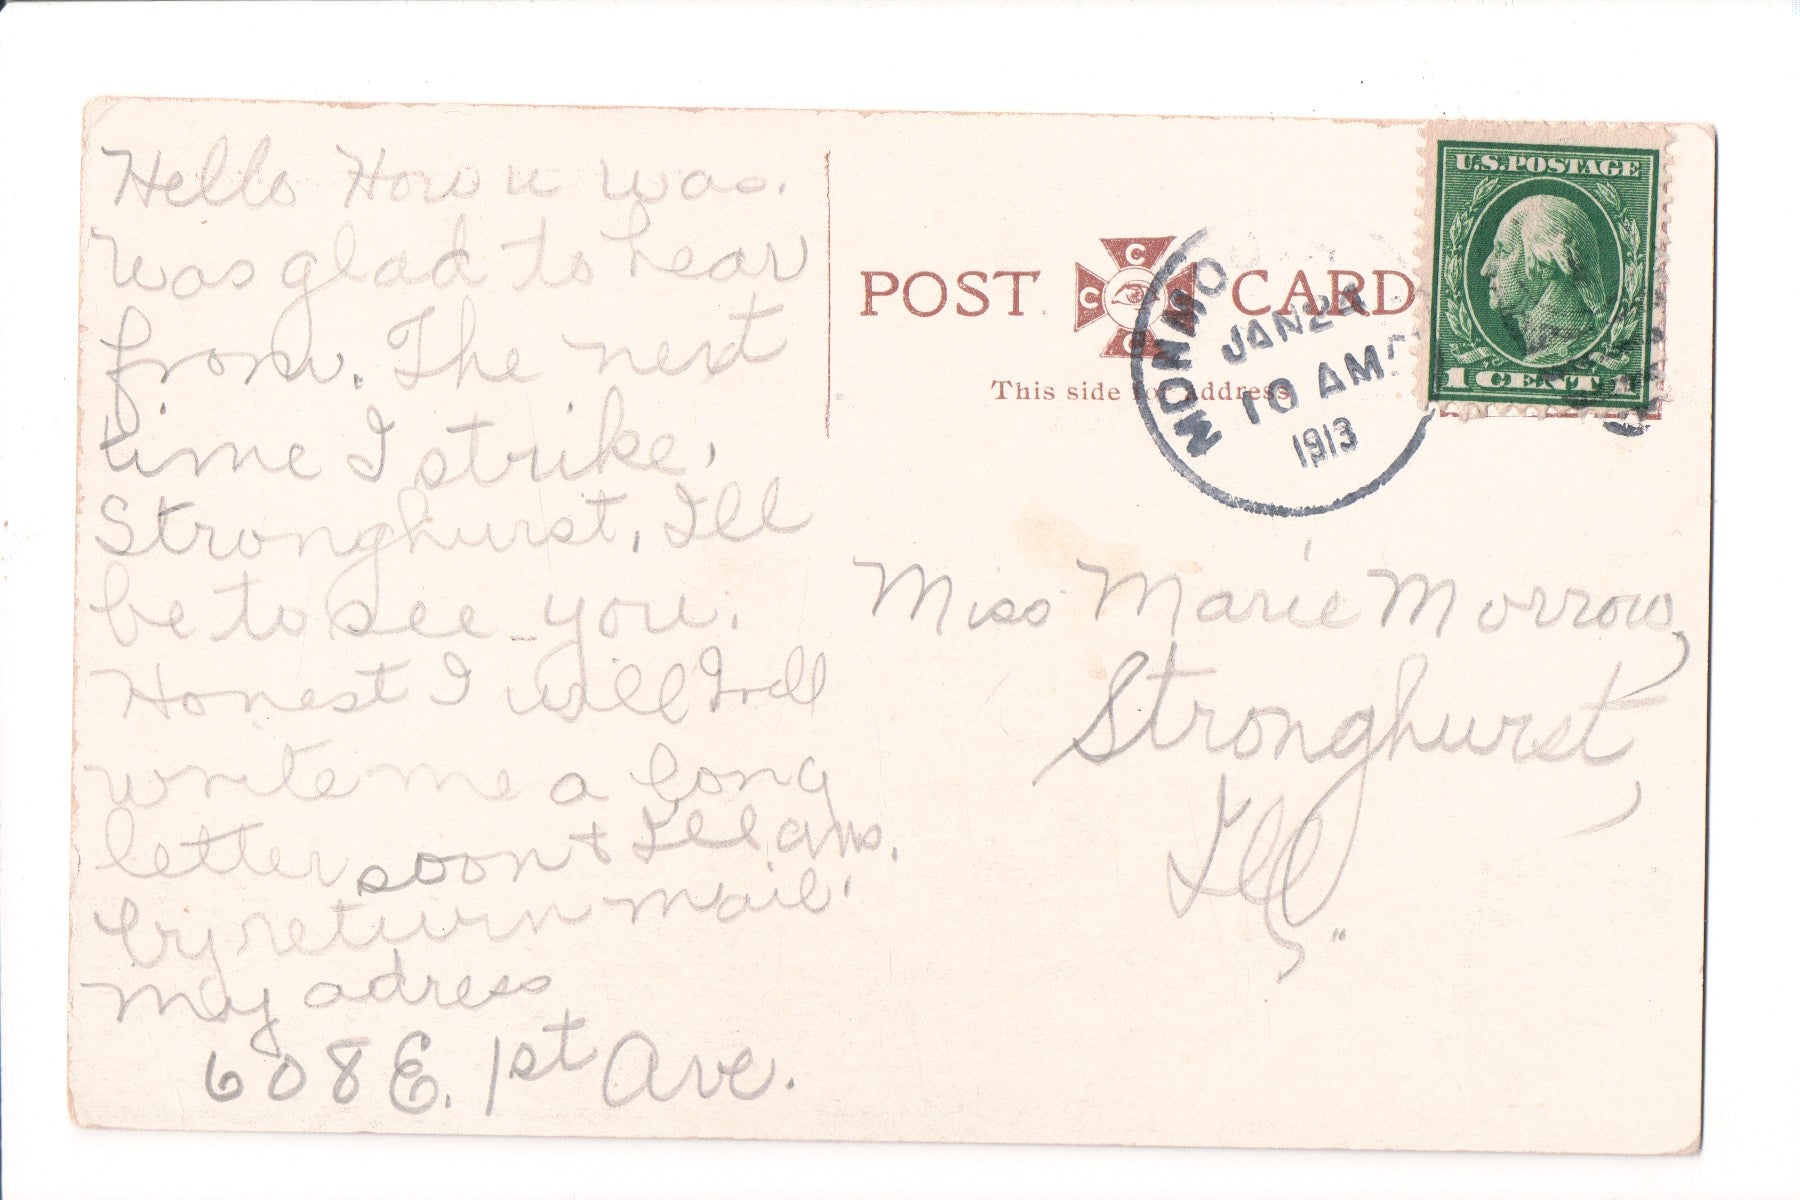 Hello How u was.
Was glad to hear
from. The next
time I strike,
Stronghurst, Ill
be to see you.
Honest I will Ill
write me a long
letter soon & Ill ans.
by return mail.
My adress
608 E. 1st Ave.
POST CARD
C C C
This side for Address
MONMO
JAN 24
10 AM
1913
U.S. POSTAGE
1 CENT 1
Miss Marie Morrow,
Stronghurst,
Ill